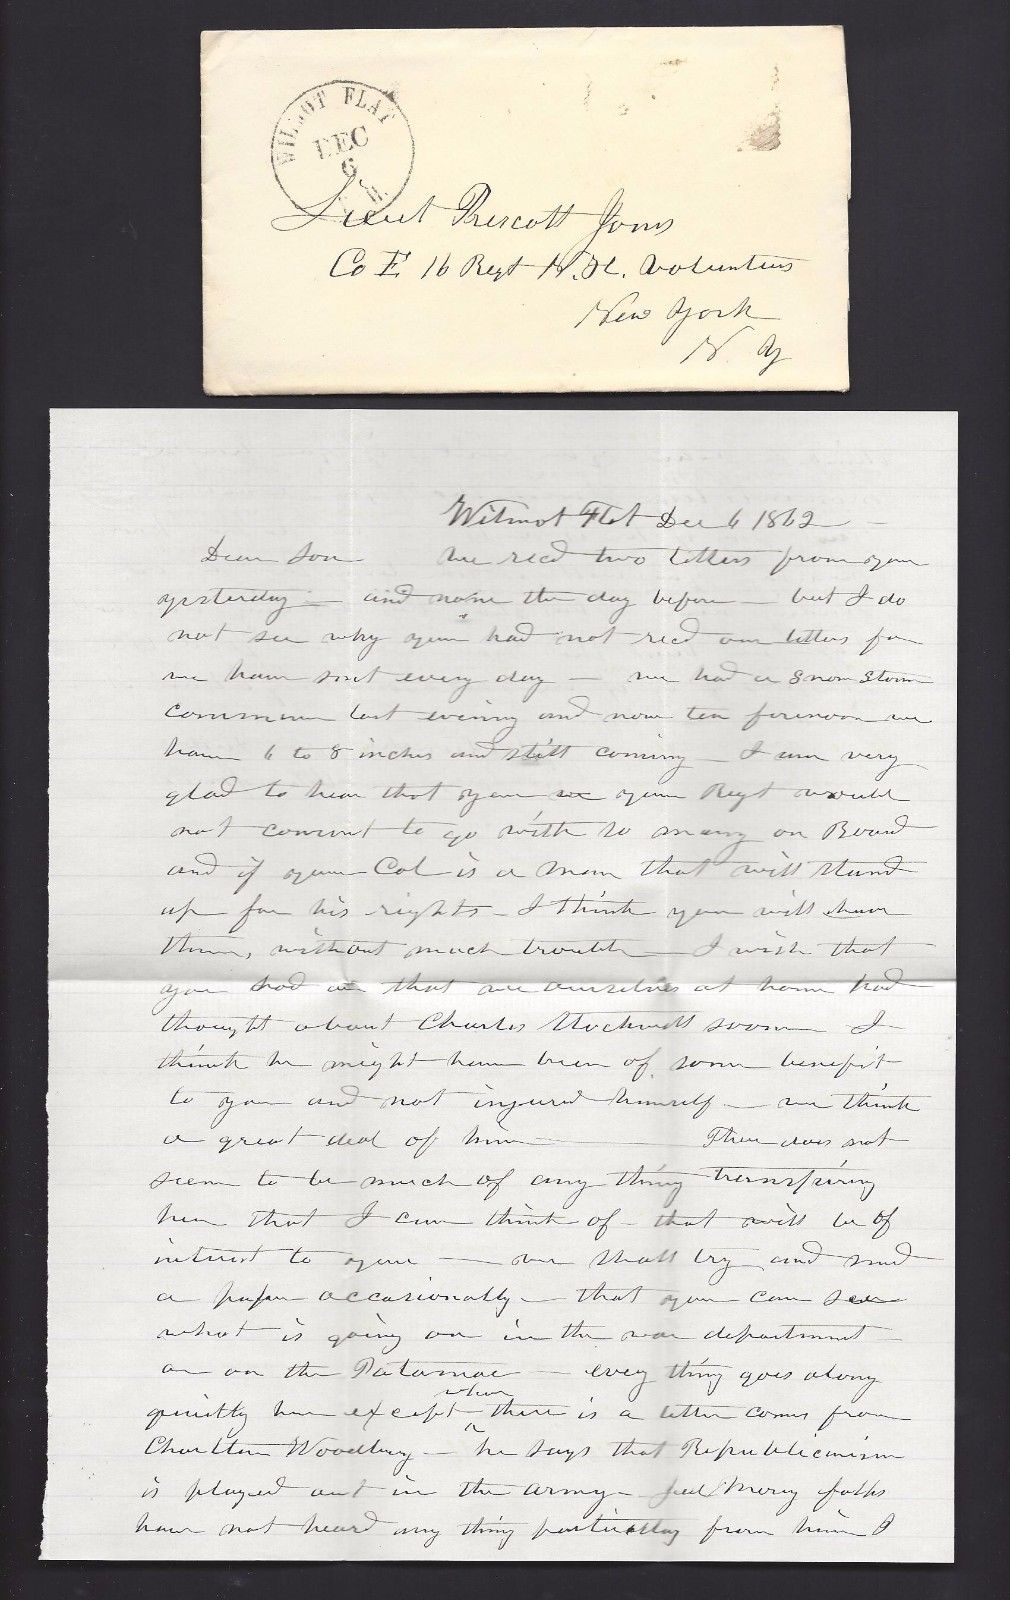 WILMOT FLAT
DEC
6
Lieut Prescott Jones
Co E 16 Regt N.H. Volunteers
New York
N. Y
Wilmot Flat Dec 6 1862
Dear Son we recd two letters from you
yesterday - and none the day before - but I do
not see why you had not recd our letters for
we have sent every day - we had a snow storm
commence last evening and now ten forenoon we
have 6 to 8 inches and still coming - I am very
glad to hear that you your Regt would
not consent to go with so many on Board
and if your Col is a man that will stand
up for his rights - I think you will have
them, without much trouble - I wish that
you had or that we ourselves at home had
thought about Charles Stockwell sooner I
think he might have been of some benefit
to you and not injured himself - we think
a great deal of him - There does not
seem to be much of any thing transpiring
here that I can think of - that will be of
interest to you - we shall try and send
a paper occasionally - that you can see
what is going on in the war department
or on the Patomac - every thing goes along
quietly here except when there is a letter comes from
Charlton Woodbury - he says that Republicanism
is played out in the army - folks
have not heard any thing from him I